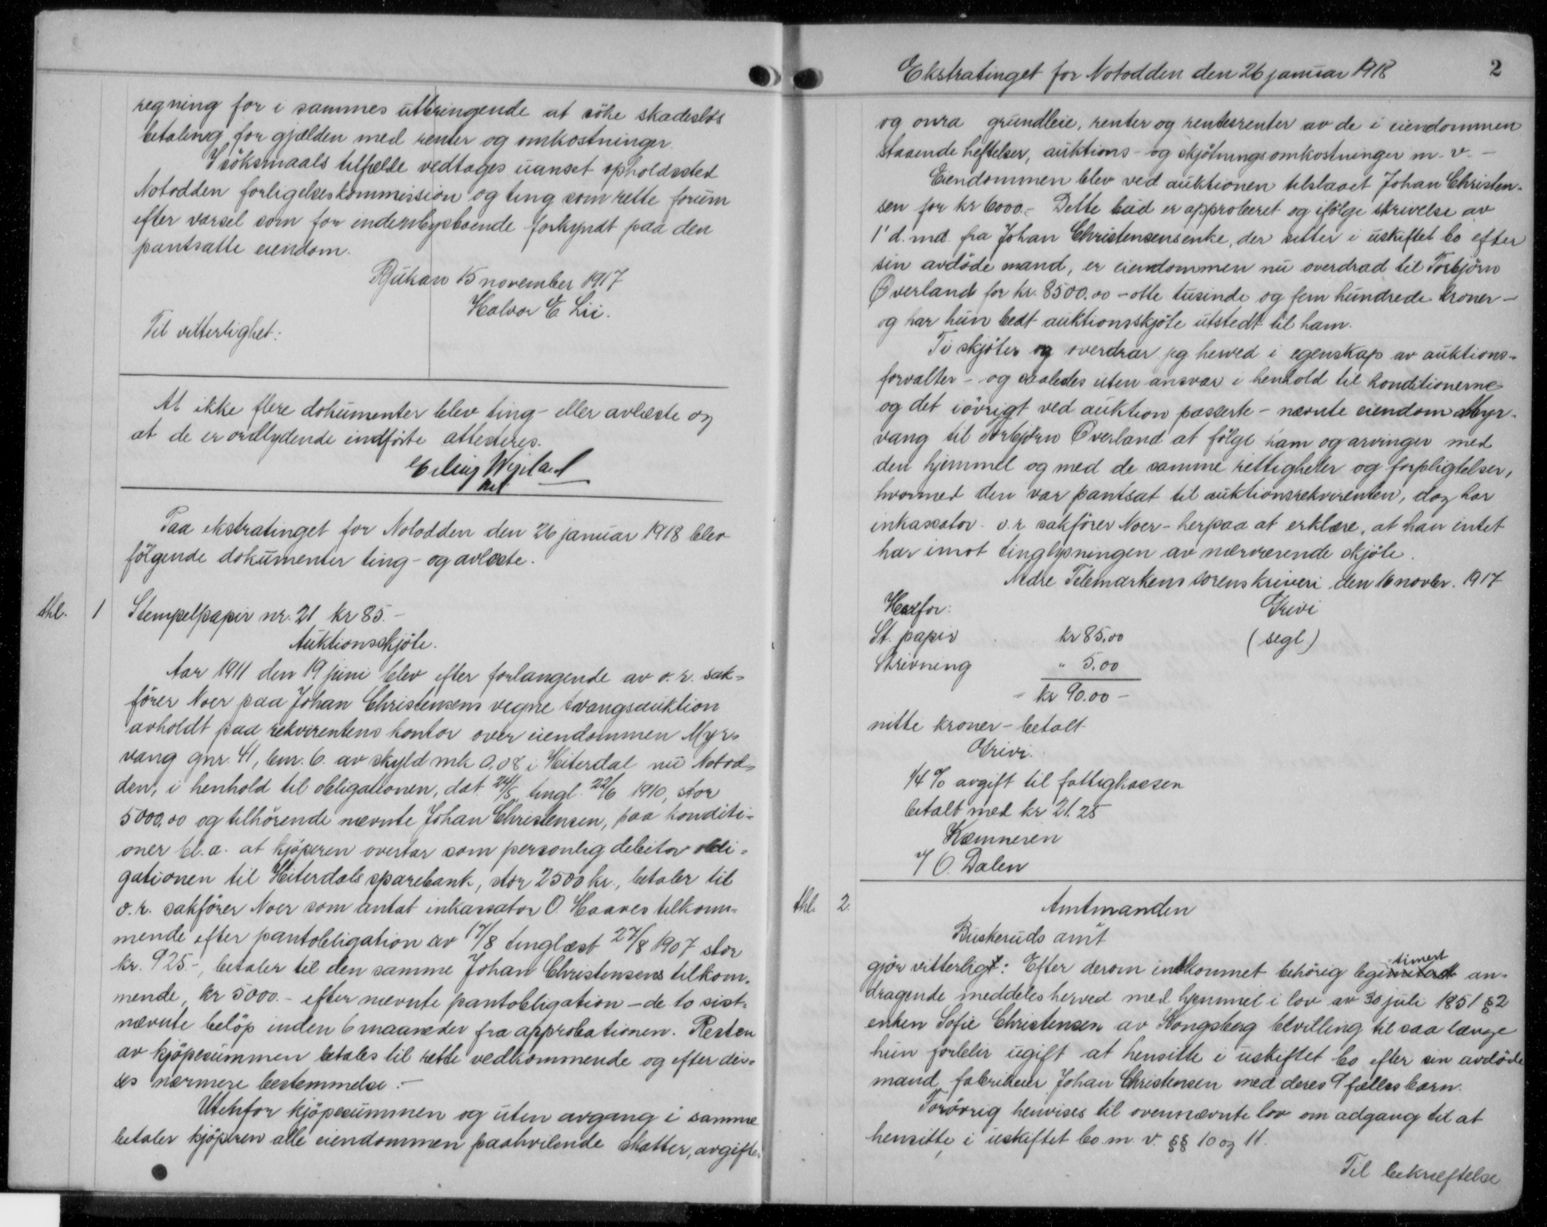 regning for i sammes utbringende at söke skadeslös
betaling for gjælden med renter og omkostninger
I söksmaals tilfælde vedtages uanset opholdssted
Notodden forligelseskommission og ting som rette forum
efter varsel som for indenbysboende forkyndt paa den
pantsatte eiendom.
Rjukan 15 november 1917
Halvor E Lii.
Til vitterlighet:
At ikke flere dokumenter blev ting- eller avlæste og
at de er ordlydende indförte attesteres.
Erling Wigeland
Paa ekstratinget for Notodden den 26 januar 1918 blev
fölgende dokumenter ting- og avlæste.
thl. 1 Stempelpapir nr. 21 kr 85.-
Auktionsskjöte.
Aar 1911 den 19 juni blev efter forlangende av o. r. sak=
förer Noer paa Johan Christensens vegne tvangsauktion
avholdt paa rekvirentens kontor over eiendommen Myr=
vang gnr. 41, bnr. 6. av skyld mk 0,08 i Hiterdal nu Notod=
den, i henhold til obligationen, dat. 24/5, tingl. 22/6 1910, stor
5000,00 og tilhörende nævnte Johan Christensen, paa konditi=
oner bl. a. at kjöperen overtar som personlig debitor obli=
gationen til Hiterdals sparebank, stor 2500 kr., betaler til
o. r. sakförer Noer som antat inkassator O. Haaves tilkom=
mende efter pantobligation av 17/8 tinglæst 27/8 1907 stor
kr. 925-, betaler til den samme Johan Christensens tilkom=
mende, kr 5000.- efter nævnte pantobligation - de to sist=
nævnte belöp inden 6 maaneder fra approbationen. Resten
av kjöpesummen betales til rette vedkommende og efter dis=
ses nærmere bestemmelse.-
Utenfor kjöpesummen og uten avgang i samme
betaler kjöperen alle eiendommen paahvilende skatter, avgifter
Ekstratinget for Notodden den 26 januar 1918 2
og ovra grundleie, renter og rentesrenter av de i eiendommen
staaende heftelser, auktions- og skjötningsomkostninger m. v. -
Eiendommen blev ved auktionen tilslaaet Johan Christen=
sen for kr 6000.- Dette bud er approberet og ifölge skrivelse av
1' d. md. fra Johan Christensens enke, der sitter i uskiftet bo efter
sin avdöde mand, er eiendommen nu overdrad til Torbjörn
Överland for kr. 8500.00 - otte tusinde og fem hundrede kroner -
og har hun bedt auktionsskjöte utstedt til ham.
Ti skjöter og overdrar jeg herved i egenskap av auktions=
forvalter - og saaledes uten ansvar i henhold til konditionerne
og det iövrigt ved auktion passerte - nævnte eiendom Myr=
vang til Torbjörn Överland at fölge ham og arvinger med
den hjemmel og med de samme rettigheter og forpligtelser,
hvormed den var pantsat til auktionsrekvirenten, dog har
inkassator o. r. sakförer Noer - herpaa at erklære, at han intet
har imot tinglysningen av nærværende skjöte.
Nedre Telemarkens sorenskriveri den 16 novbr. 1917
Herfor: Grivi
St. papir kr 85,00 (segl)
Skrivning " 5.00
kr 90.00 -
nitte kroner - betalt
Grivi.
1/4 % avgift til fattigkassen
betalt med kr 21.25
Kæmneren
v/ O. Dalen
thl. 2. Amtmanden
Buskeruds amt
gjör vitterligt: Efter derom indkommet behörig legitimert an=
dragende meddeles herved med hjemmel i lov av 30 juli 1851 § 2
enken Sofie Christensen av Kongsberg bevilling til saa længe
hun forblir ugift at hensitte i uskiftet bo efter sin avdöde
mand, fabrikeier Johan Christensen med deres 9 fælles barn.
Forövrig henvises til ovennævnte lov om adgang til at
hensitte, i uskiftet bo m v. §§ 10 og 11.
Til bekræftelse